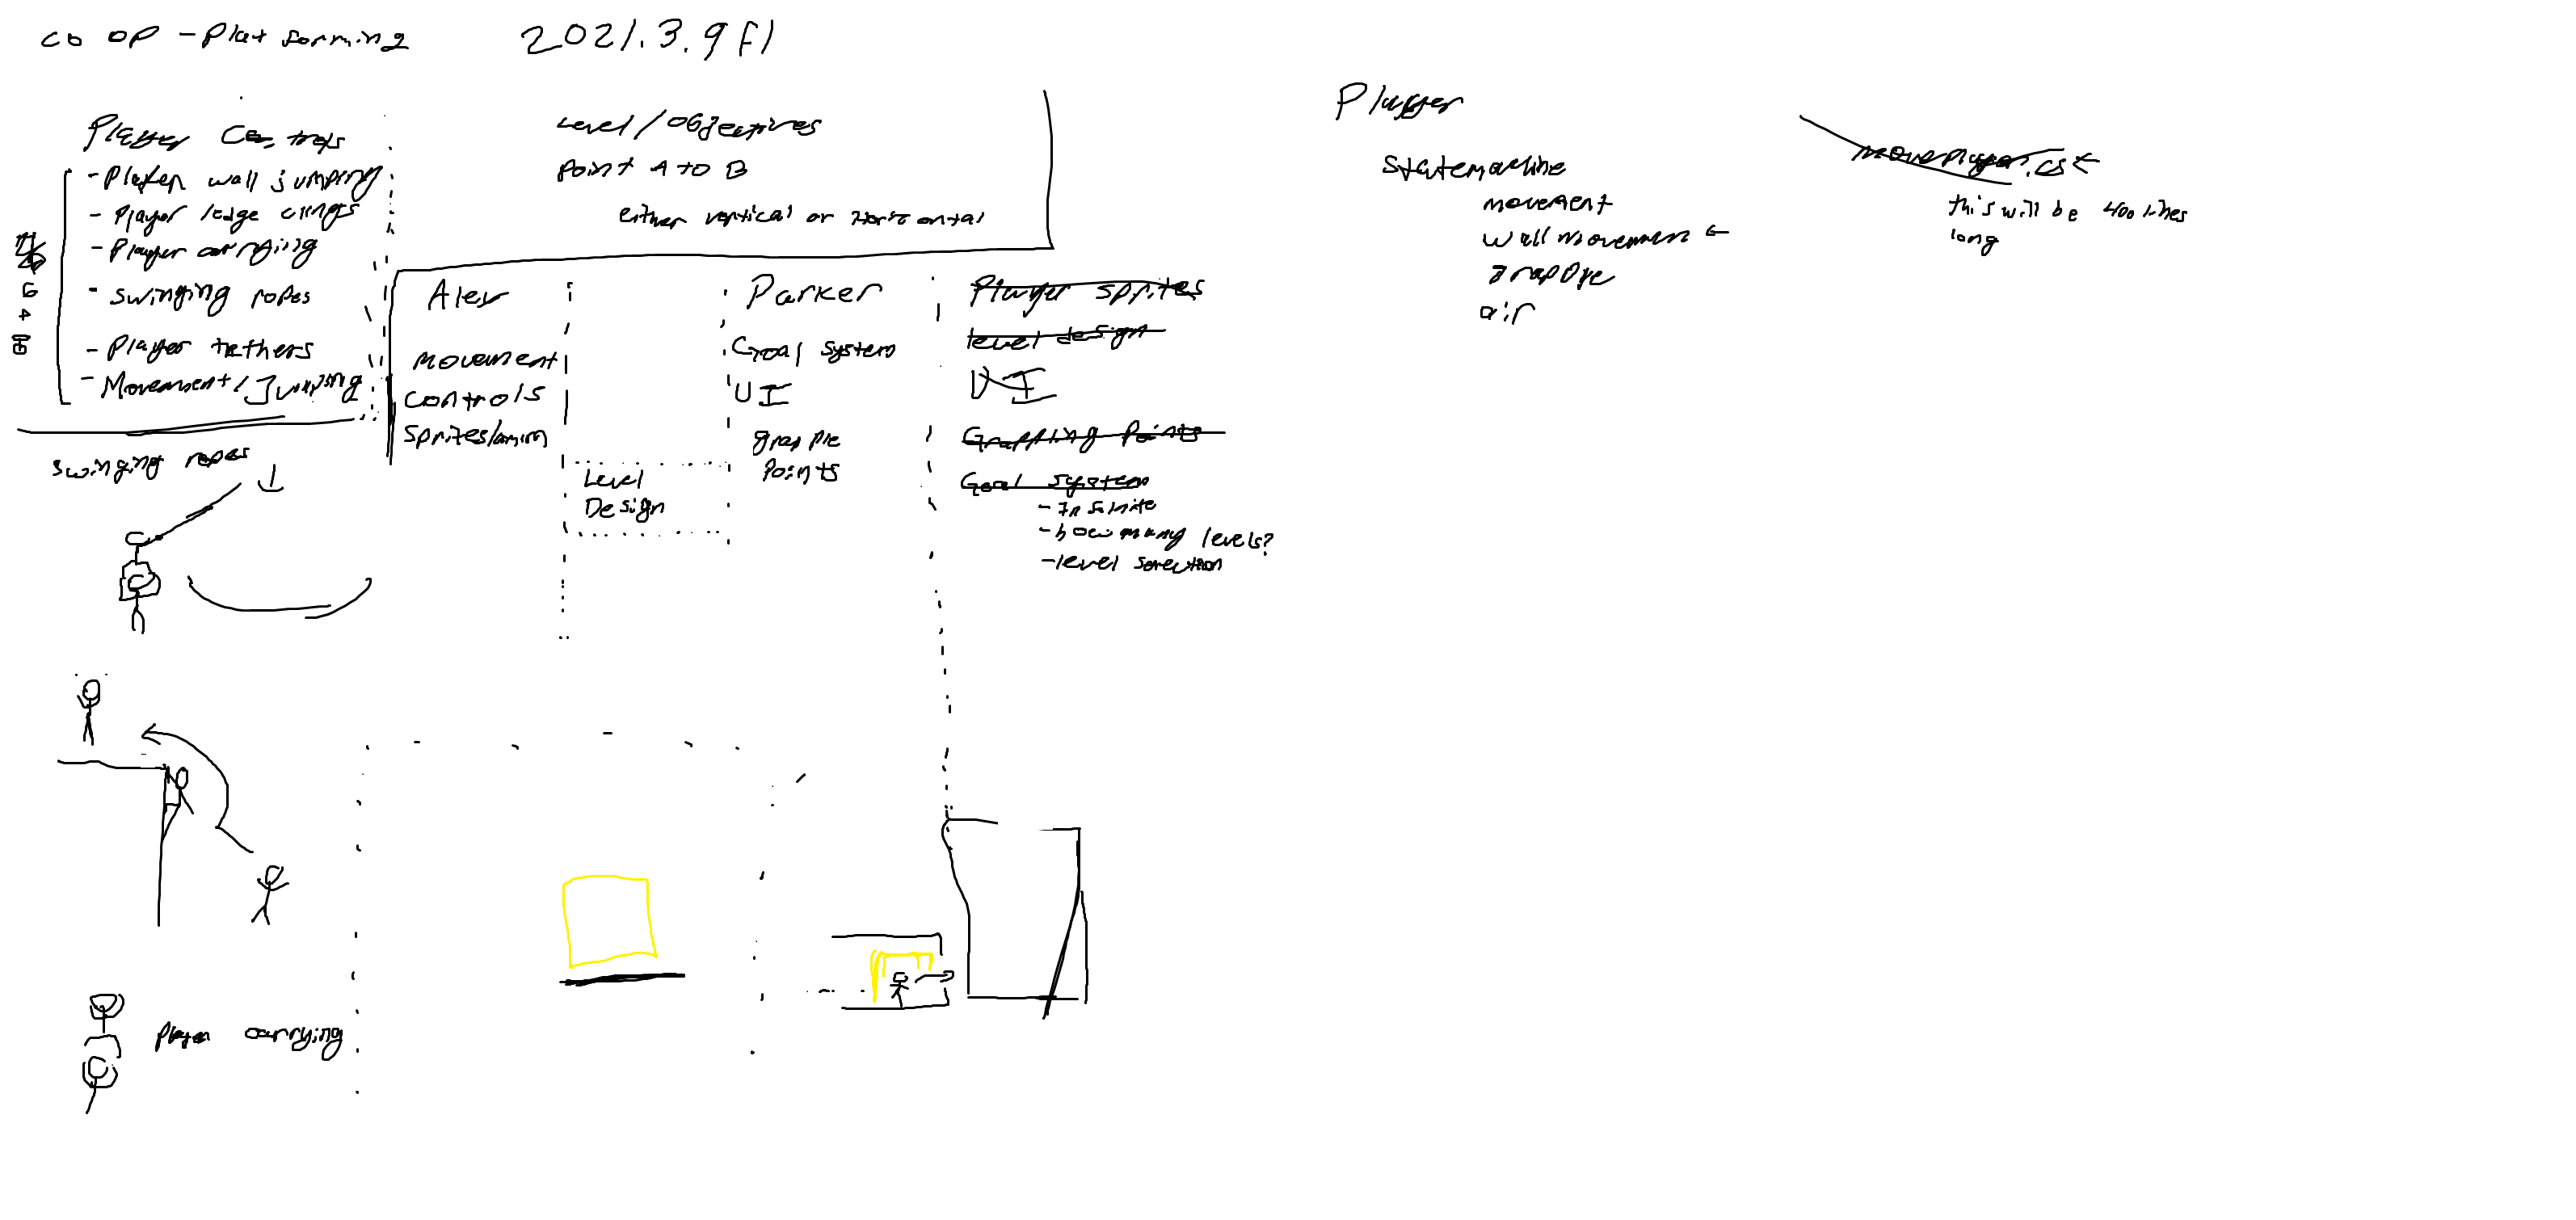 co op - Platforming
2021.3.9f1
Player Controls
- Player wall jumping
- Player ledge clings
- Player carrying
- swinging ropes
- Player tethers
- Movement / Jumping
Level / Objectives
Point A to B
either vertical or Horizontal
Alex
movement
controls
sprites/anim
Level
Design
Parker
Goal system
UI
grapple
Points
Player sprites
level design
UI
Grappling Points
Goal system
- Infinite
- how many levels?
- level selection
swinging ropes
Player carrying
Player
statemachine
movement
wall movement
grapple
air
moveplayer.cs
this will be 400 lines
long